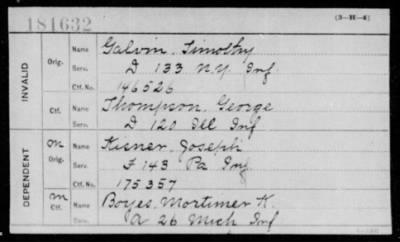 181632
(3-H-4)
INVALID
Orig.
Name Galvin, Timothy
Serv. D 133 N.Y. Inf
Ctf. No. 146526
Ctf.
Name Thompson, George
Serv. D 120 Ill Inf
DEPENDENT
Orig.
Name Kisner, Joseph
Serv. F 143 Pa Inf
Ctf. No. 175357
Ctf.
Name Boyes, Mortimer K.
Serv. A 26 Mich Inf